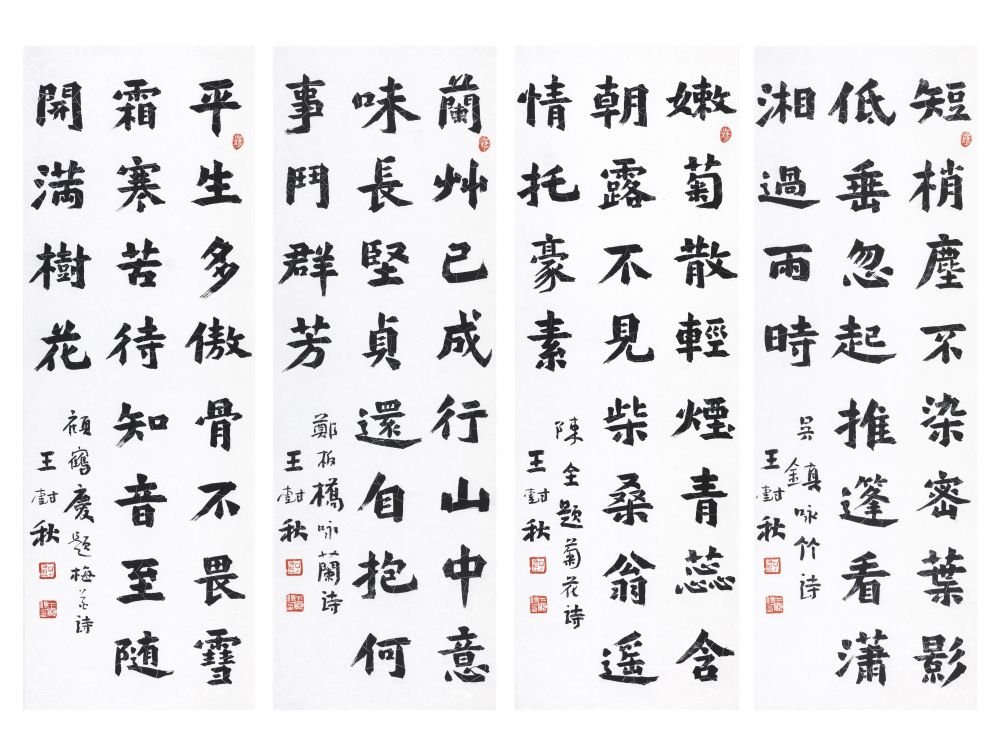 短梢塵不染密葉影
低垂忽起推篷看瀟
湘過雨時
吳鎮咏竹诗
王封秋
嫩菊散輕煙青蕊含
朝露不見柴桑翁遥
情托豪素
陳全题菊花诗
王封秋
蘭艸已成行山中意
味長堅貞還自抱何
事鬥群芳
鄭板橋咏蘭诗
王封秋
平生多傲骨不畏雪
霜寒苦待知音至随
開满樹花
顧鶴慶题梅花诗
王封秋